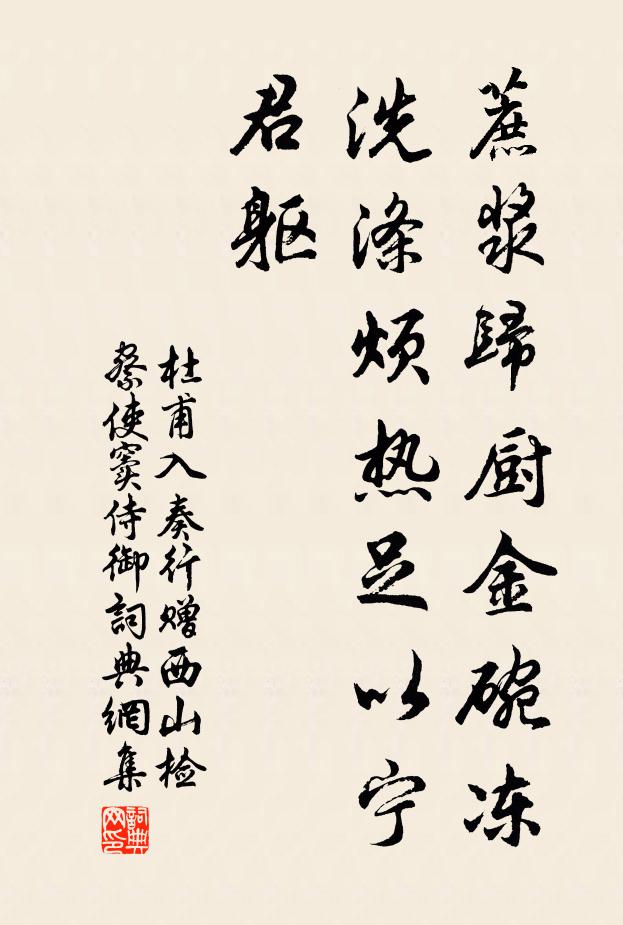 蔗漿歸厨金碗冻
洗涤烦热足以宁
君躯
杜甫入奏行赠西山检
察使窦侍御詞典網集
詞典网印